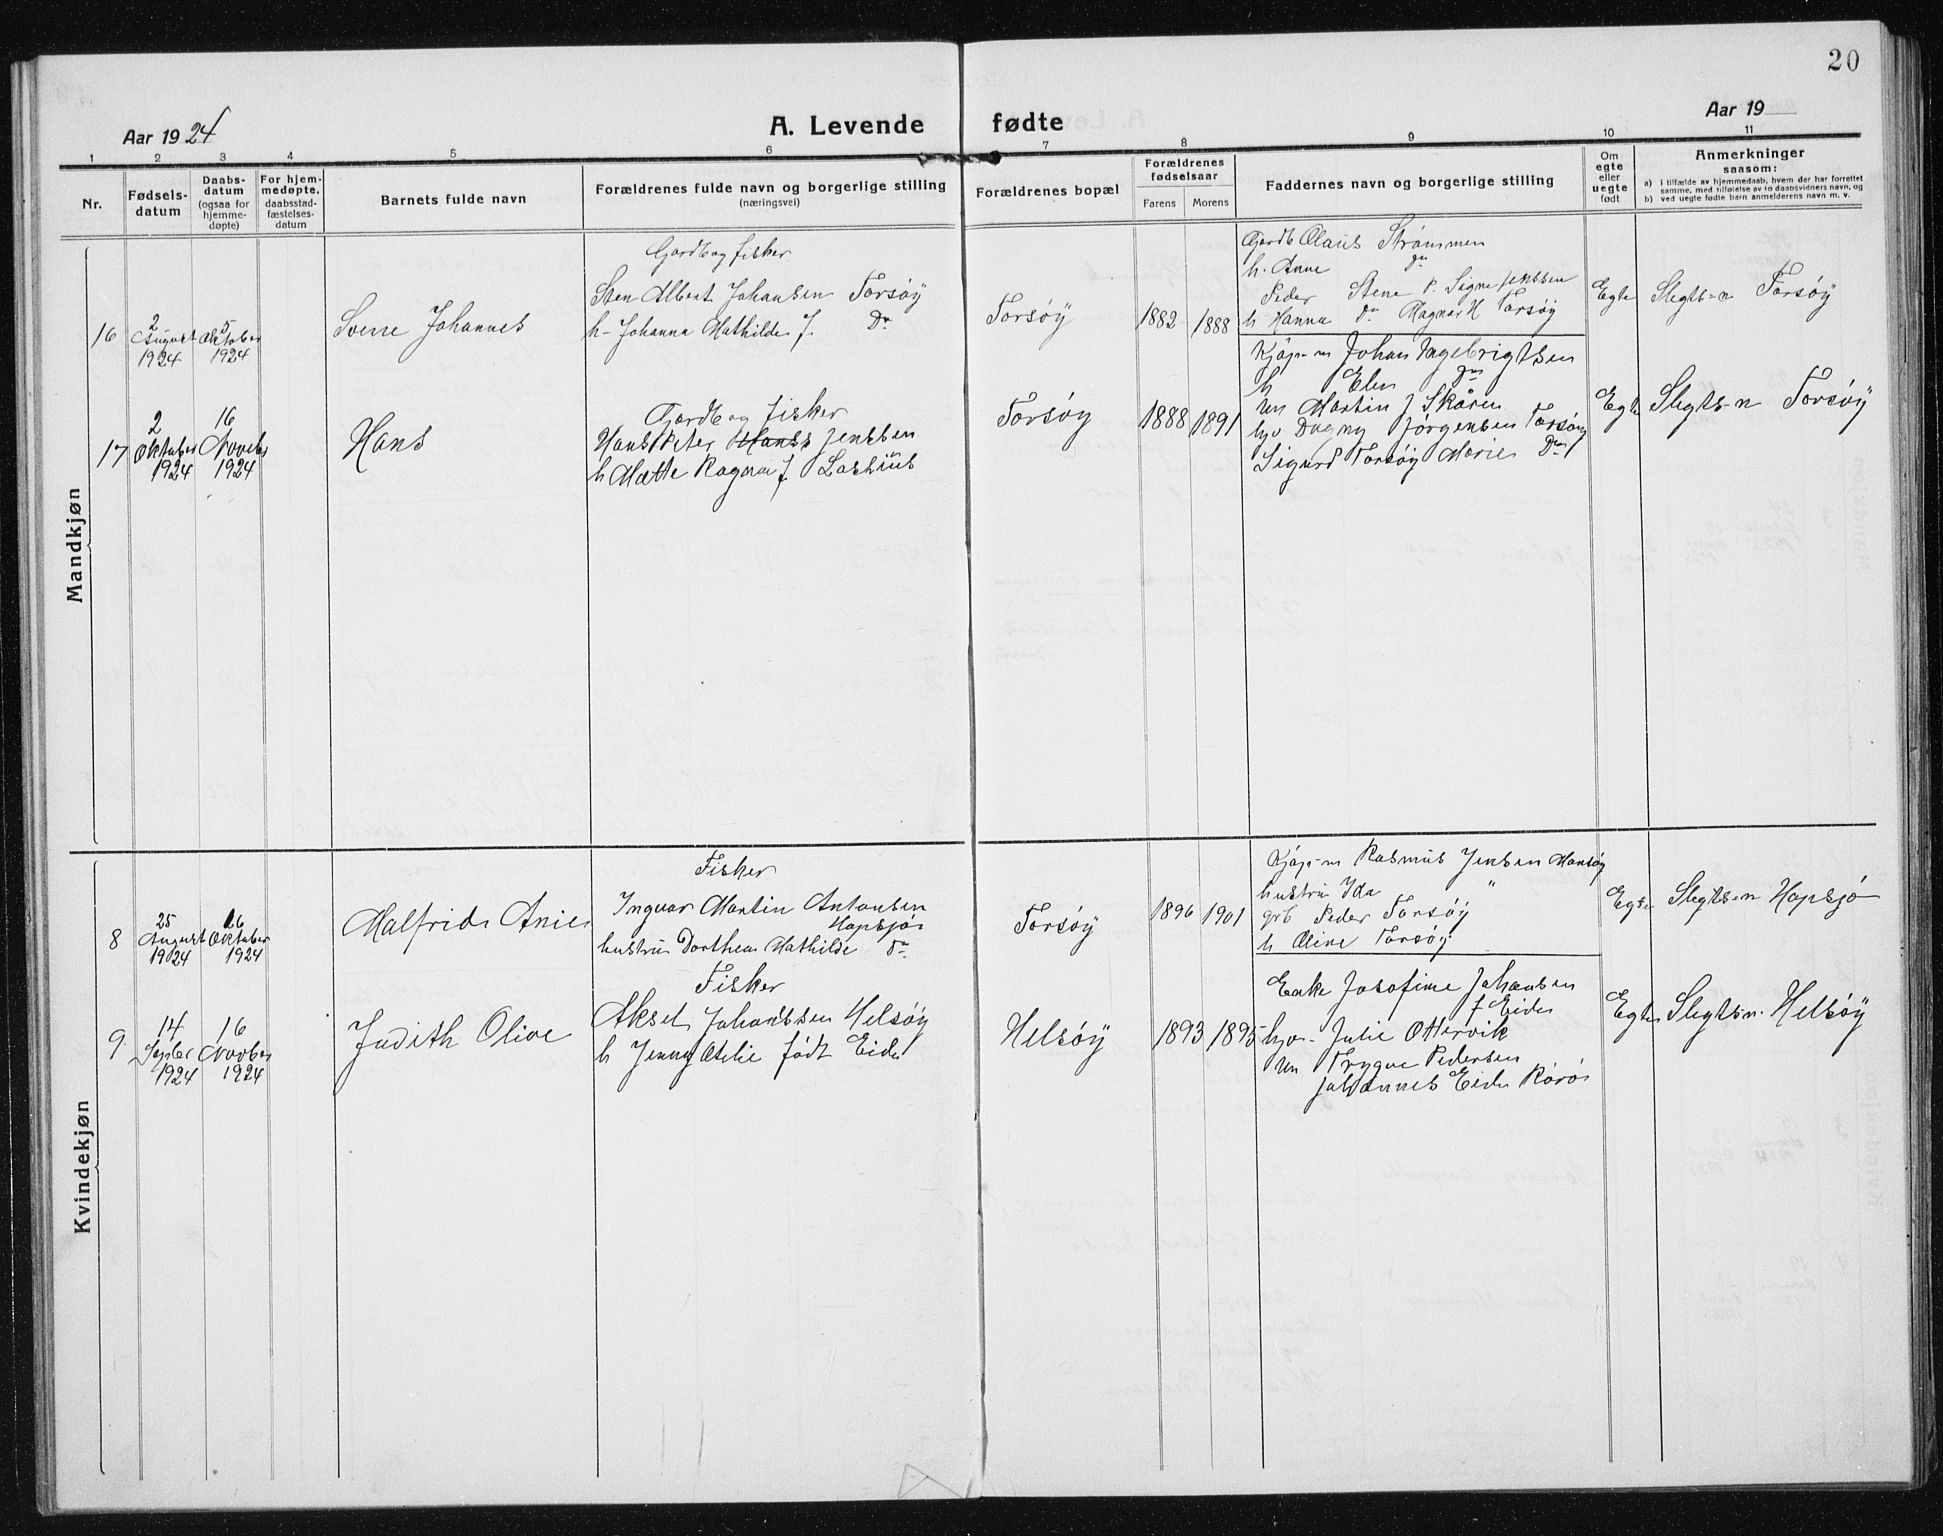 20
Aar 1924
A. Levende fødte
Aar 19
1 2 3 4 5 6 7 8 9 10 11
Nr.
Fødsels-
datum
Daabs-
datum
(ogsaa for
hjemme-
døpte)
For hjem-
medøpte,
daabsstad-
fæstelses-
datum
Barnets fulde navn
Forældrenes fulde navn og borgerlige stilling
(næringsvei)
Forældrenes bopæl
Forældrenes
fødselsaar
Farens Morens
Faddernes navn og borgerlige stilling
Om
egte
eller
uegte
født
Anmerkninger
saasom:
a) I tilfælde av hjemmedaab, hvem der har forrettet
samme, med tilføielse av to daabsvidners navn, og
b) ved uegte fødte barn anmelderens navn m. v.
Mandkjøn
16
2
August
1924
5
Oktober
1924
Sverre Johannes
Gardb og fisker
Sten Albert Johansen Torsøy
h- Johanna Mathilde J. Do
Torsøy
1882 1888
Gardb Olaus Strømmen
h. Anne do
Peder Stene P. Signe Jenssen
h Hanna do Ragnar H Torsøy
Egte
Slegts-n Torsøy
17
2
Oktober
1924
16
Novebr
1924
Hans
Gardb og fisker
Hans Peter Hanss Jenssen
h Mette Ragna f
Torsøy
1888 1891
Kjøp-m Johan Ingebrigtsen
h Elen do
Un Martin J Skåren
hjv Dagny Jørgensen Torsøy
Sigurd Torsøy Marie Do
Egte
Slegts-n Torsøy
Kvindekjøn
8
25
August
1924
26
Oktober
1924
Malfrid Anie
Fisker
Ingvar Martin Antonsen
Hopsjø
hustru Dorthea Mathilde do
Torsøy
1896 1901
Kjøp-m Rasmus Jensen Hansøy
hustru Ida "
grb Peder Torsøy
h Oline Torsøy
Egte
Slegts-n Hopsjø
9
14
Septbr
1924
16
Novbr
1924
Judith Olive
Fisker
Aksel Johanssen Helsøy
h Jenny Otelie født Eide
Helsøy
1893 1895
Enke Josefine Johansen
f Eide
hjv- Julie Ottervik
Un Trygve Pedersen
Johannes Eide
Egte
Slegts-n. Helsøy